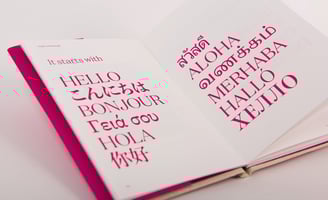 It starts with
HELLO
こんにちは
BONJOUR
Γειά σου
HOLA
你好
สวัสดี
ALOHA
வணக்கம்
MERHABA
HALLÓ
ХЕЛЛО